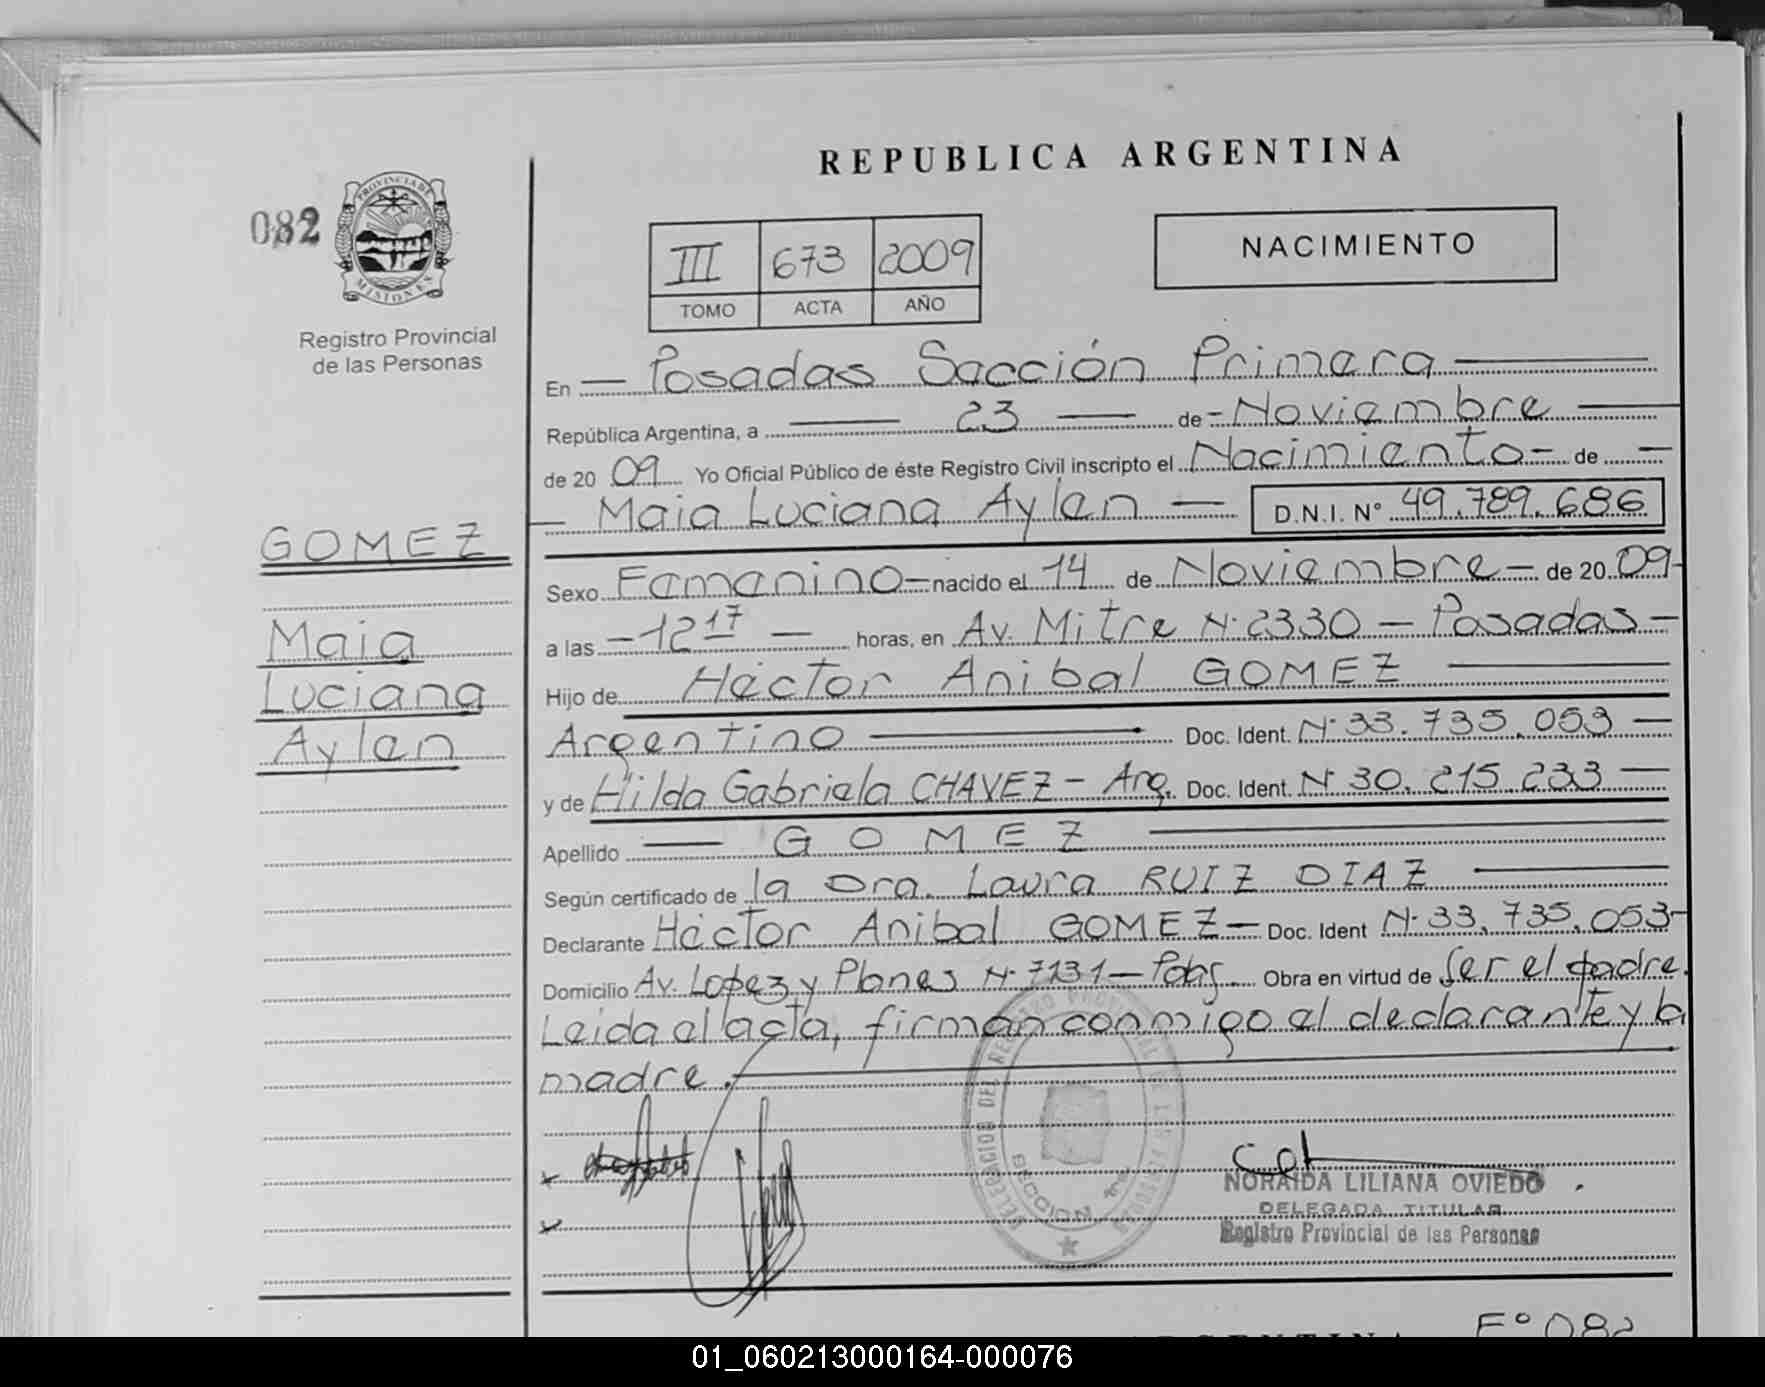 REPUBLICA ARGENTINA
082
PROVINCIA DE
MISIONES
Registro Provincial
de las Personas
III 673 2009
TOMO ACTA AÑO
NACIMIENTO
En — Posadas Sección Primera —
República Argentina, a — 23 — de - Noviembre —
de 20 09 Yo Oficial Público de éste Registro Civil inscripto el Nacimiento - de —
— Maia Luciana Aylen — D.N.I. N° 49.789.686
GOMEZ
Maia
Luciana
Aylen
Sexo Femenino - nacido el 14 de Noviembre - de 20 09 -
a las - 12 17 — horas, en Av. Mitre N· 2330 - Posadas -
Hijo de Héctor Anibal GOMEZ —
Argentino — Doc. Ident. N· 33.735.053 —
y de Hilda Gabriela CHAVEZ - Arg. Doc. Ident. N· 30.215.233 —
Apellido — GOMEZ —
Según certificado de la Dra. Laura RUIZ DIAZ —
Declarante Héctor Anibal GOMEZ - Doc. Ident N· 33.735.053 -
Domicilio Av. Lopez y Planes N· 7131 - Pdas. Obra en virtud de ser el padre.
Leida el acta, firman conmigo el declarante y la
madre.
SECCION 1ra
NORAIDA LILIANA OVIEDO
DELEGADA TITULAR
Registro Provincial de las Personas
F° 082
ARGENTINA
01_060213000164-000076